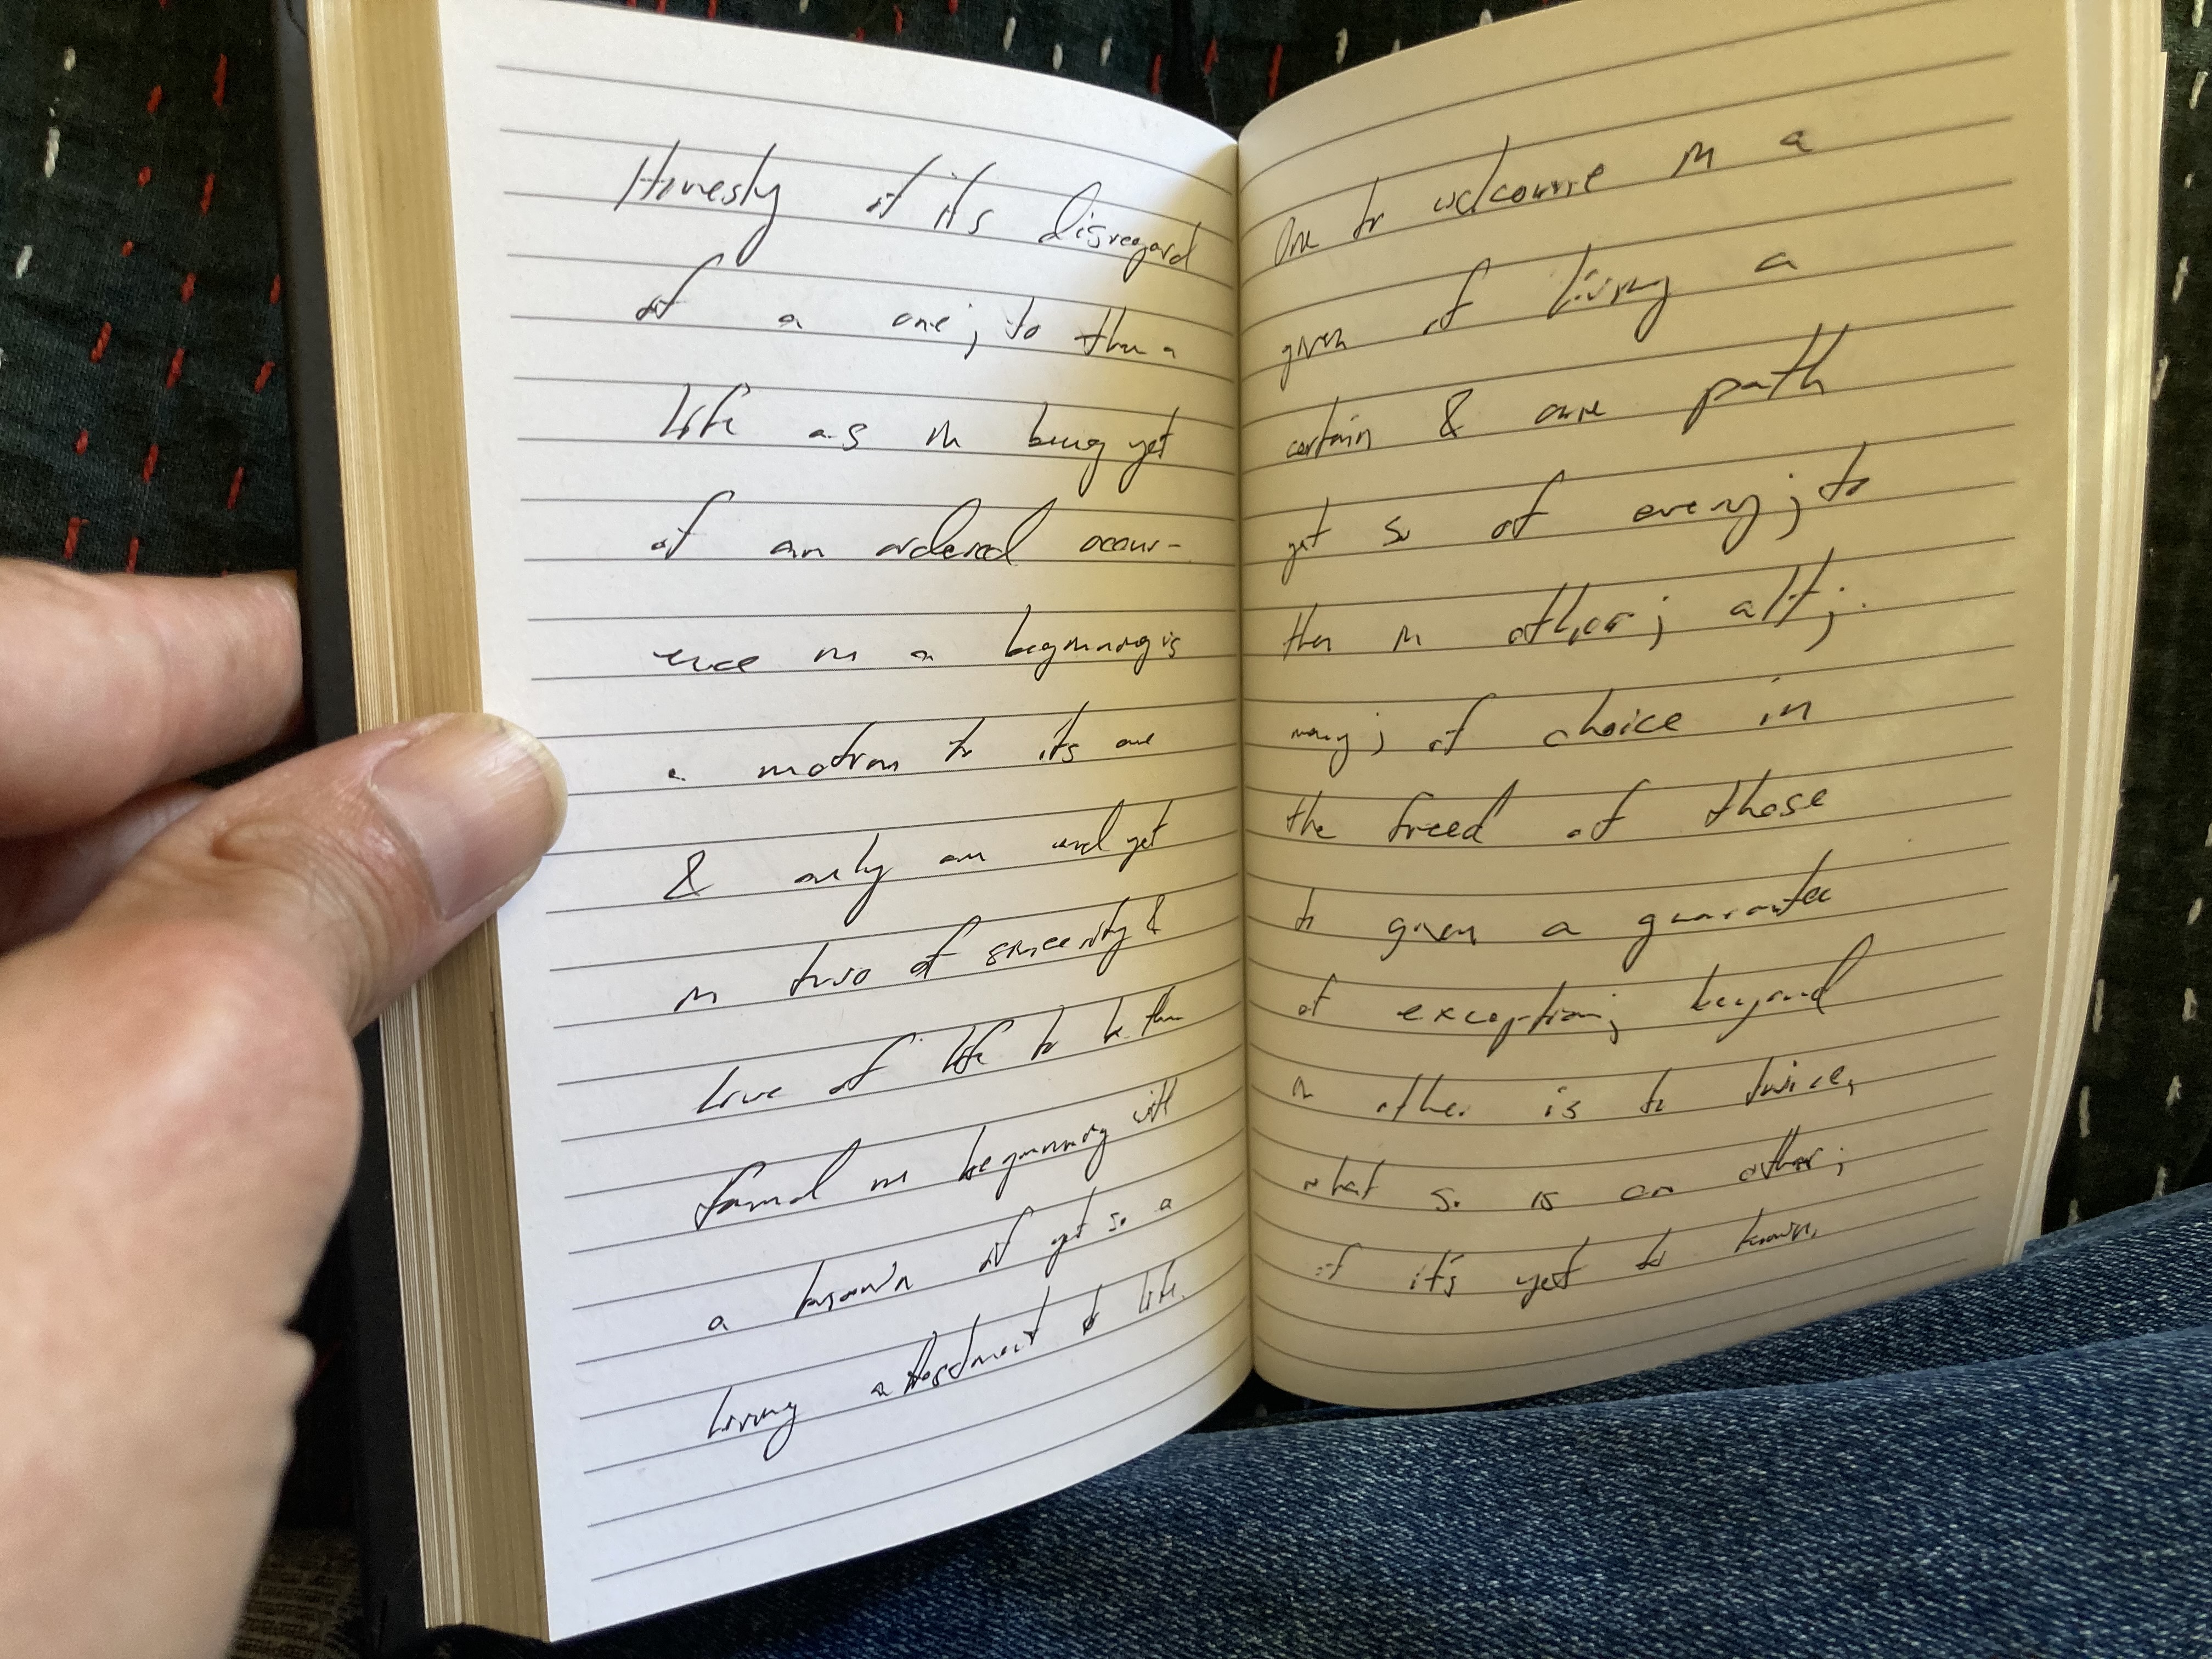 Honesty of it's disregard
of a one; to then a
life as in being yet
of an ordered occur-
ence in a beginning is
a motion to its one
& only an and yet
in two of sincerity &
love of life to be then
found in beginning with
a known of yet so a
living attestment of life.
One to welcome in a
given of living a
certain & one path
yet so of every; to
then in other; alt;
many; of choice in
the freed of those
to given a guarantee
of exception; beyond
in other is to twice,
what so is an other;
if it's yet to known.